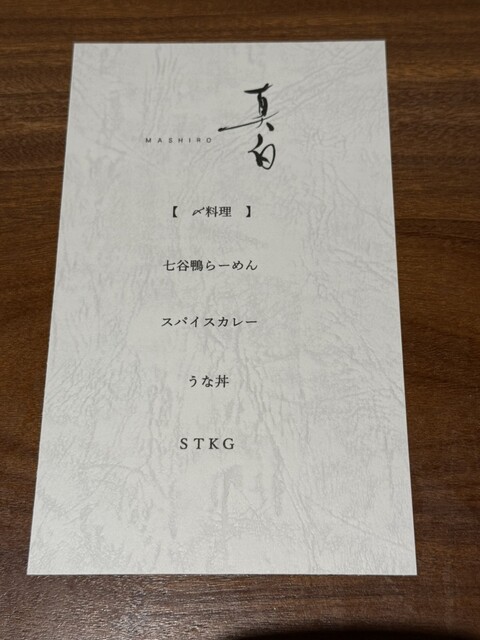 真白
MASHIRO
【 〆料理 】
七谷鴨らーめん
スパイスカレー
うな丼
STKG